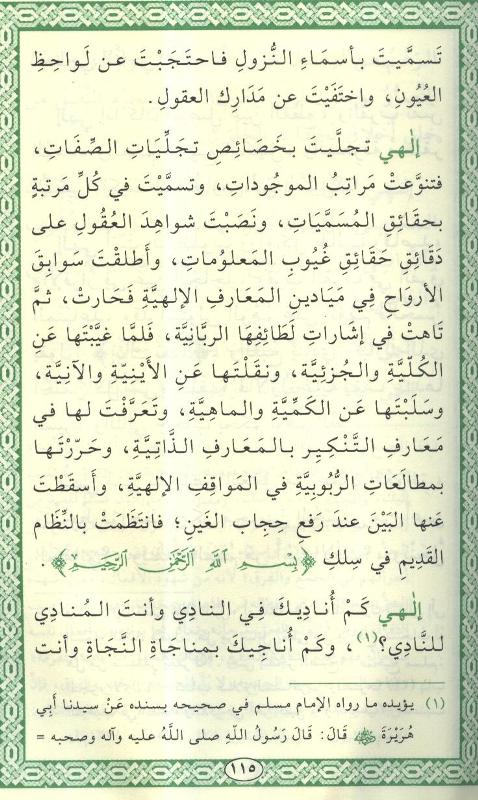 تَسمَّيتَ بأسمَاءِ النُّزولِ فاحتَجَبْتَ عن لَواحِظِ
العُيُونِ، واختَفَيْتَ عن مَدَارِك العقولِ.
إلٰهي تجلَّيتَ بخَصَائِصِ تجَلِّيَاتِ الصِّفَاتِ،
فتنوَّعتْ مَراتِبُ الموجُوداتِ، وتسمَّيْتَ في كُلِّ مَرتبةٍ
بحقائِقِ المُسَمَّيَاتِ، ونَصَبْتَ شواهِدَ العُقُولِ على
دَقَائِقِ حَقَائِقِ غُيُوبِ المَعلوُمَاتِ، وأَطلقْتَ سَوابِقَ
الأروَاحِ فِي مَيَادينِ المَعَارفِ الإلهيَّةِ فَحَارتْ، ثمَّ
تَاهتْ في إشَاراتِ لَطائِفِهَا الربَّانِيَّة، فَلمَّا غيَّبْتَها عَنِ
الكُلّيَّةِ والجُزئِيَّة، ونقَلْتَها عَنِ الأَيْنِيَّةِ والآنِيَّة،
وسَلَبْتَها عَنِ الكَمِّيَّةِ والماهِيَّةِ، وتَعَرَّفْتَ لها في
مَعَارفِ التَّنْكِيرِ بالمَعَارفِ الذَّاتِيَّةِ، وحَرّرْتَها
بمطالَعَاتِ الرُّبُوبيَّةِ في المَوَاقِفِ الإلهيَّةِ، وأَسقَطْتَ
عَنها البَيْنَ عندَ رَفعِ حِجابِ الغَينِ؛ فانتَظَمَتْ بالنِّظَام
القَدِيمِ في سِلكِ ﴿بِسْمِ اللَّهِ الرَّحْمَٰنِ الرَّحِيمِ﴾.
إلٰهي كَمْ أُنادِيكَ فِي النادِي وأنتَ المُنادِي
للنَّادِي؟(١)، وكَمْ أُناجِيكَ بمناجَاةِ النَّجَاةِ وأنت
(١) يؤيده ما رواه الإمام مسلم في صحيحه بسنده عَنْ سيدنا أَبِي
هُرَيْرَةَ ﵁ قَالَ: قَالَ رَسُولُ اللَّهِ صلى اللَّهُ عليه وآله وصحبه =
١١٥